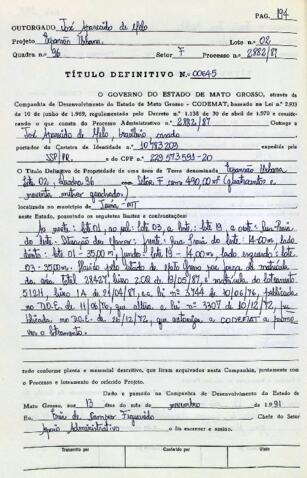 PAG. 194
OUTORGADO José Aparecido de Melo
Projeto Expansão Urbana Lote n.o 02
Quadra n.o 96 Setor F Processo n.o 2882/87
TÍTULO DEFINITIVO N.o 00645
O GOVERNO DO ESTADO DE MATO GROSSO, através da
Companhia de Desenvolvimento do Estado de Mato Grosso - CODEMAT, baseado na Lei n.o
10 de junho de 1969, regulamentado pelo Decreto n.o 1.138 de abril de 1.970 e consideran-
do o que consta do Processo Administrativo n.o 2882/87 Outorga a
José Aparecido de Melo, brasileiro,
portador da Carteira de Identidade n.o 10783203 expedida pela
SSP/PR e do CPF n.o 229573593-20
O Título Definitivo de Propriedade de uma área de Terras denominada Expansão Urbana
Lote 02, quadra 96 Setor F com 490,00m² (quatrocentos e
noventa metros quadrados)
localizada no município de Juína-MT
neste Estado, possuindo os seguintes limites e confrontações:
Ao norte: lote 01, ao sul: lote 03, a leste: lote 19, a oeste: Rua
frente: 14.00m, lado
direito: lote 01 - 35.00m, fundo: lote 19 - 14.00m, lado esquerdo: lote
03 - 35.00m. pelo Estado de Mato Grosso
área total 28427 livro 2CQ de 19/05/87, e matrícula do loteamento
de 21/04/87, lei nº 3744 de 10/06/76, publicada
no D.O.E. de 11/06/76, que altera a lei nº 3307 de 10/12/72, pu-
blicada no D.O.E. de 26/12/72, que autoriza a CODEMAT a promo-
ver o loteamento.
tudo conforme planta e memorial descritivo, que ficam arquivados nesta Companhia, juntamente com
o Processo e loteamento do referido Projeto.
Dado e passado na Companhia de Desenvolvimento do Estado de
Mato Grosso, aos 13 dias do mês de novembro de 1991
Eu, de Campos Figueiredo Chefe do Setor
Apoio Administrativo o fiz escrever e assino.
Transcrito por Conferido por Visto